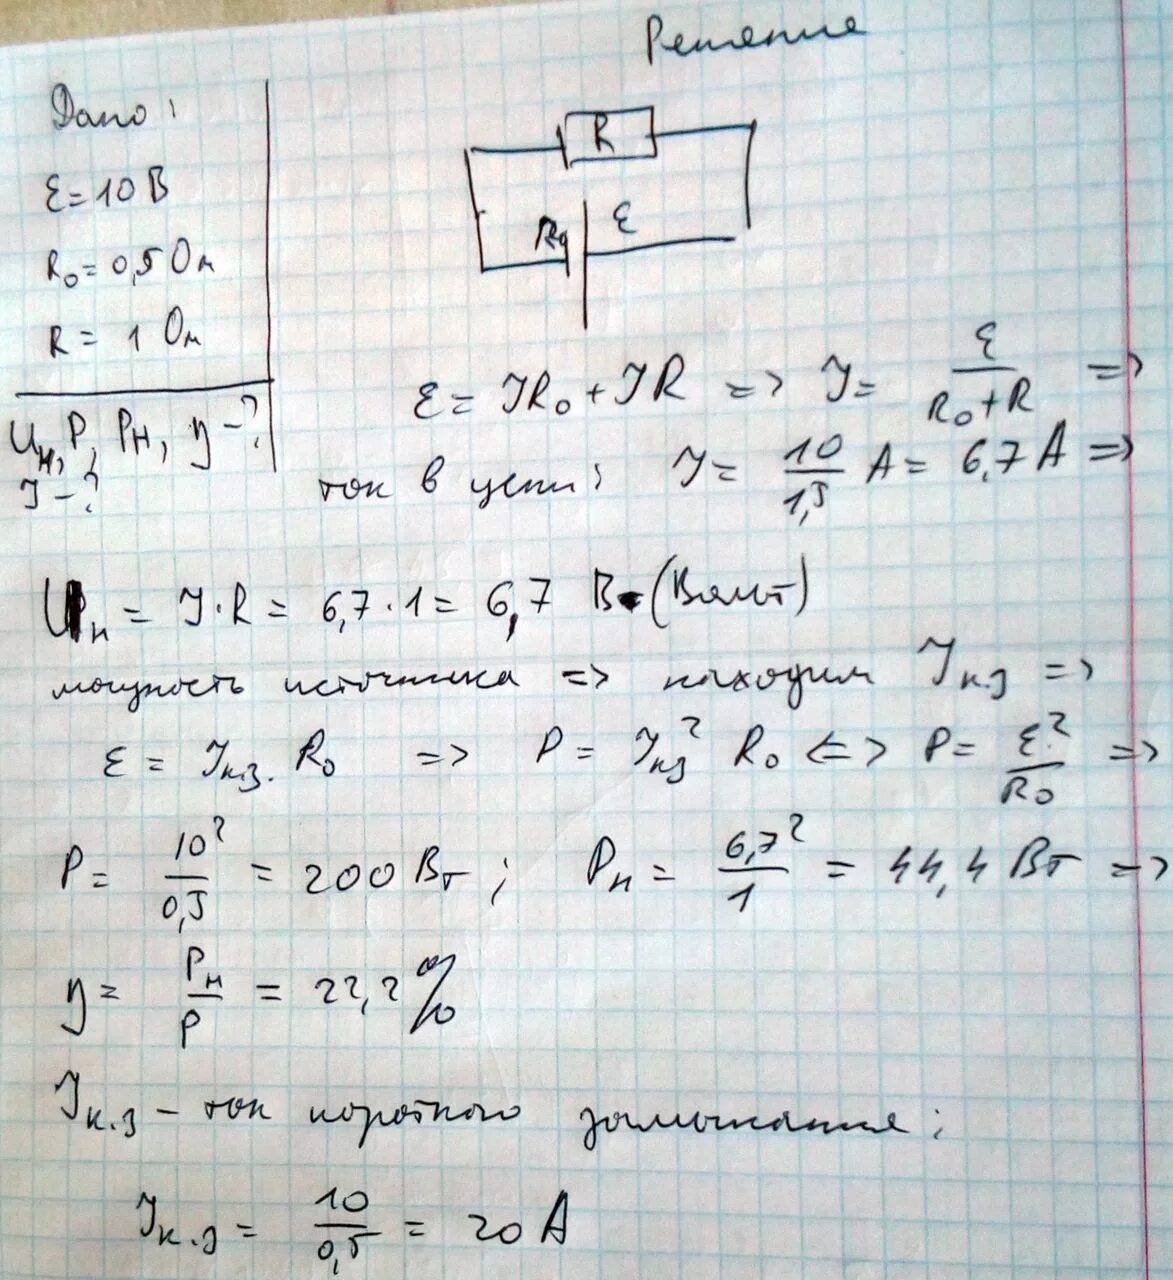 Решение
Дано:
ε = 10 В
R₀ = 0,5 Ом
R = 1 Ом
Uн, P, Pн, η - ?
I - ?
R
R₀ ε
ε = IR₀ + IR => I = ε / (R₀ + R) =>
ток в цепи: I = 10 / 1,5 A = 6,7 A =>
Uн = I · R = 6,7 · 1 = 6,7 В (Вольт)
мощность источника => находим Iк.з =>
ε = Iк.з. R₀ => P = Iкз² R₀ <=> P = ε² / R₀ =>
P = 10² / 0,5 = 200 Вт; Pн = 6,7² / 1 = 44,4 Вт =>
η = Pн / P = 22,2 %
Iк.з – ток короткого замыкания;
Iк.з = 10 / 0,5 = 20 A